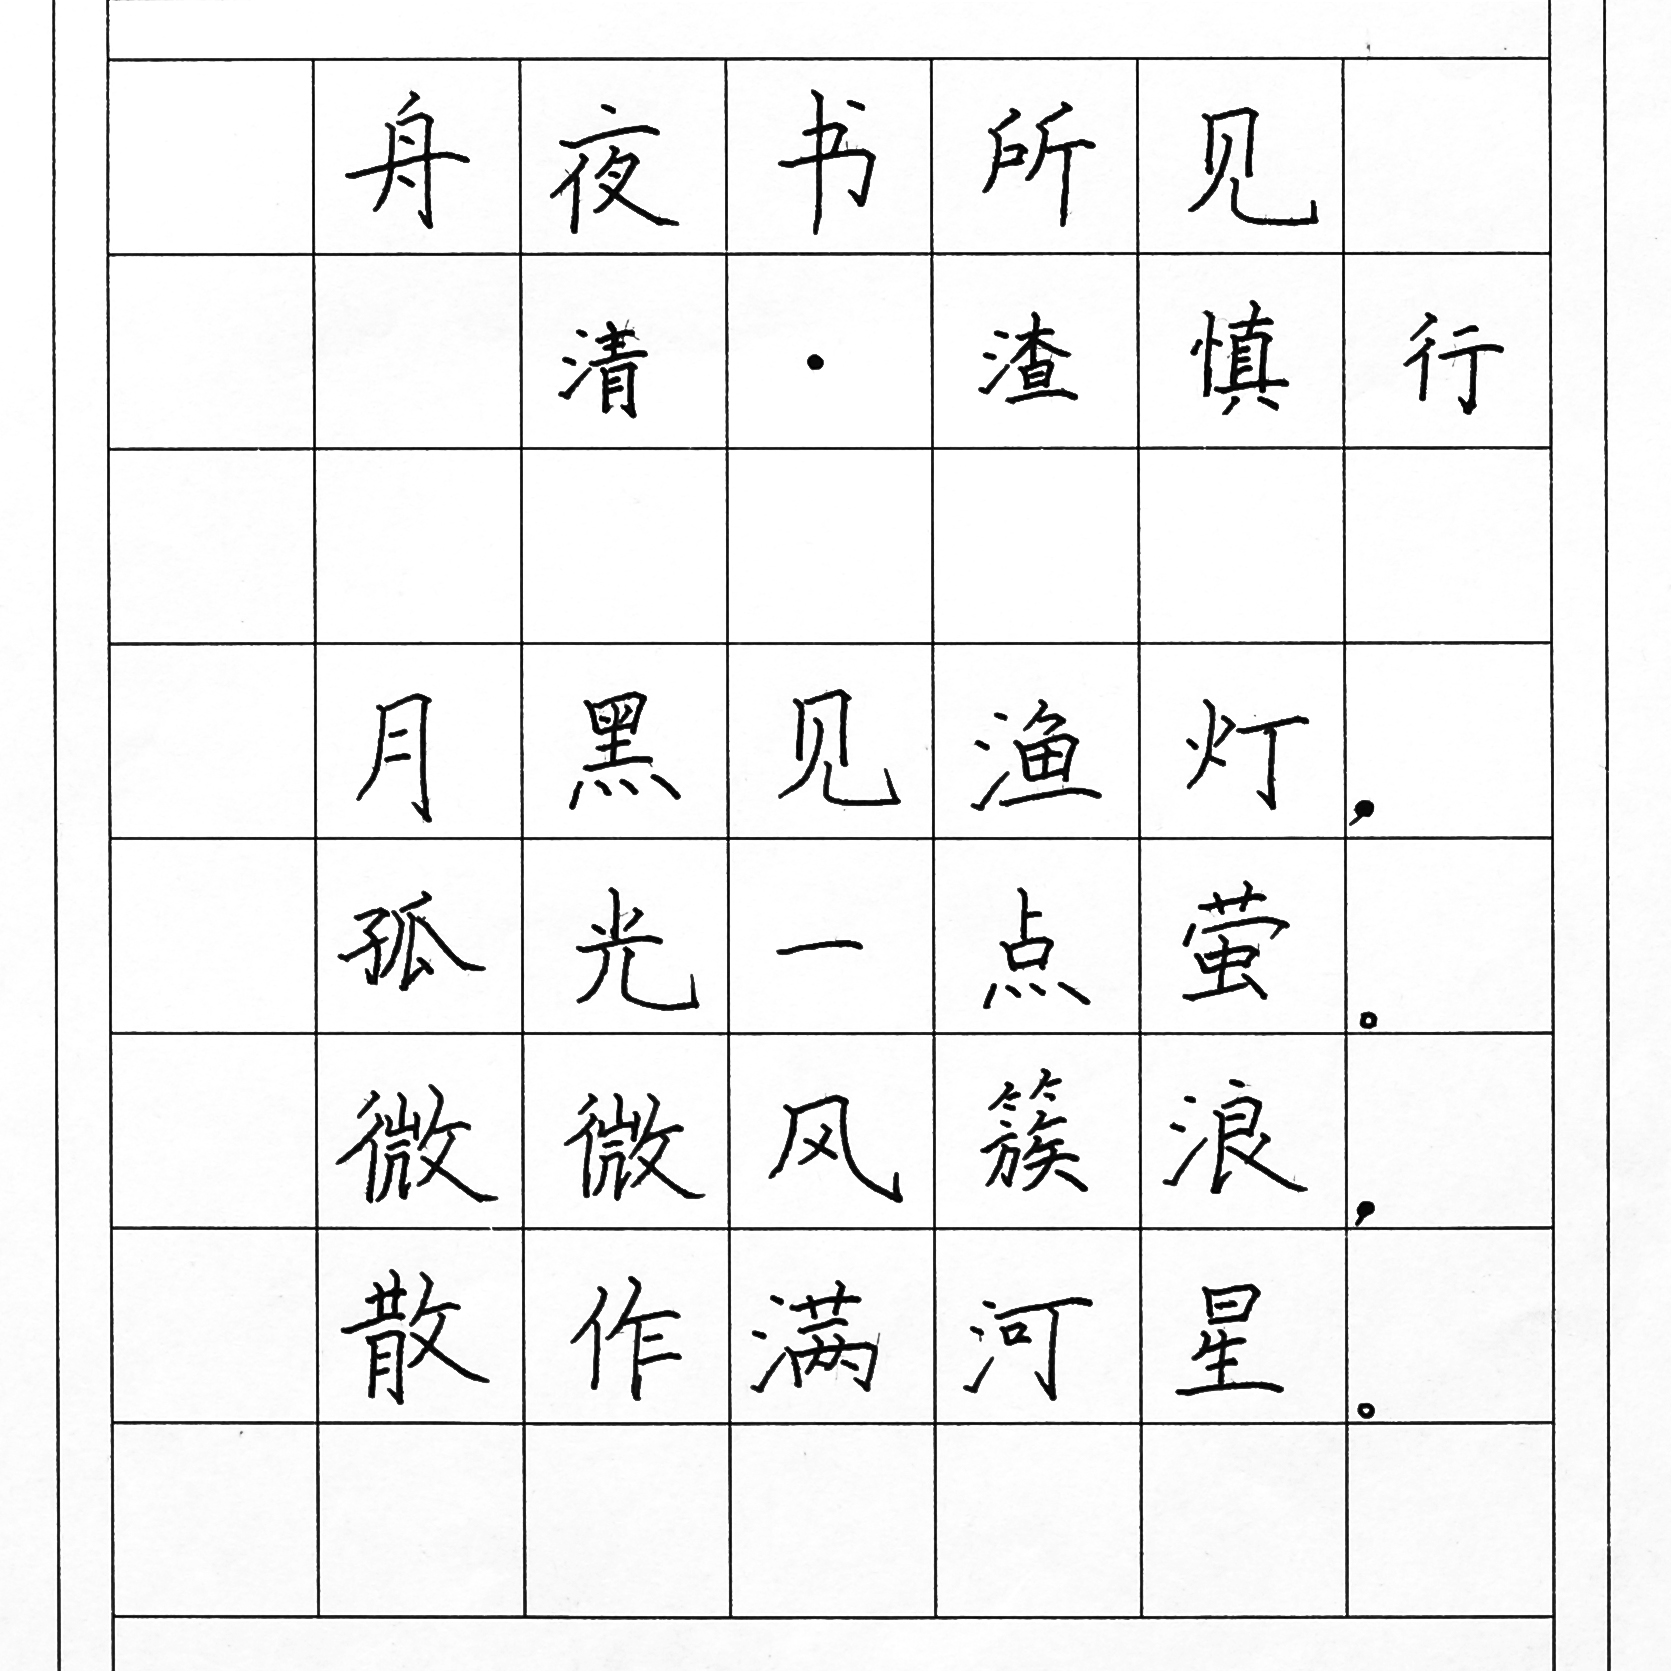 舟夜书所见
清·渣慎行
月黑见渔灯，
孤光一点萤。
微微风簇浪，
散作满河星。